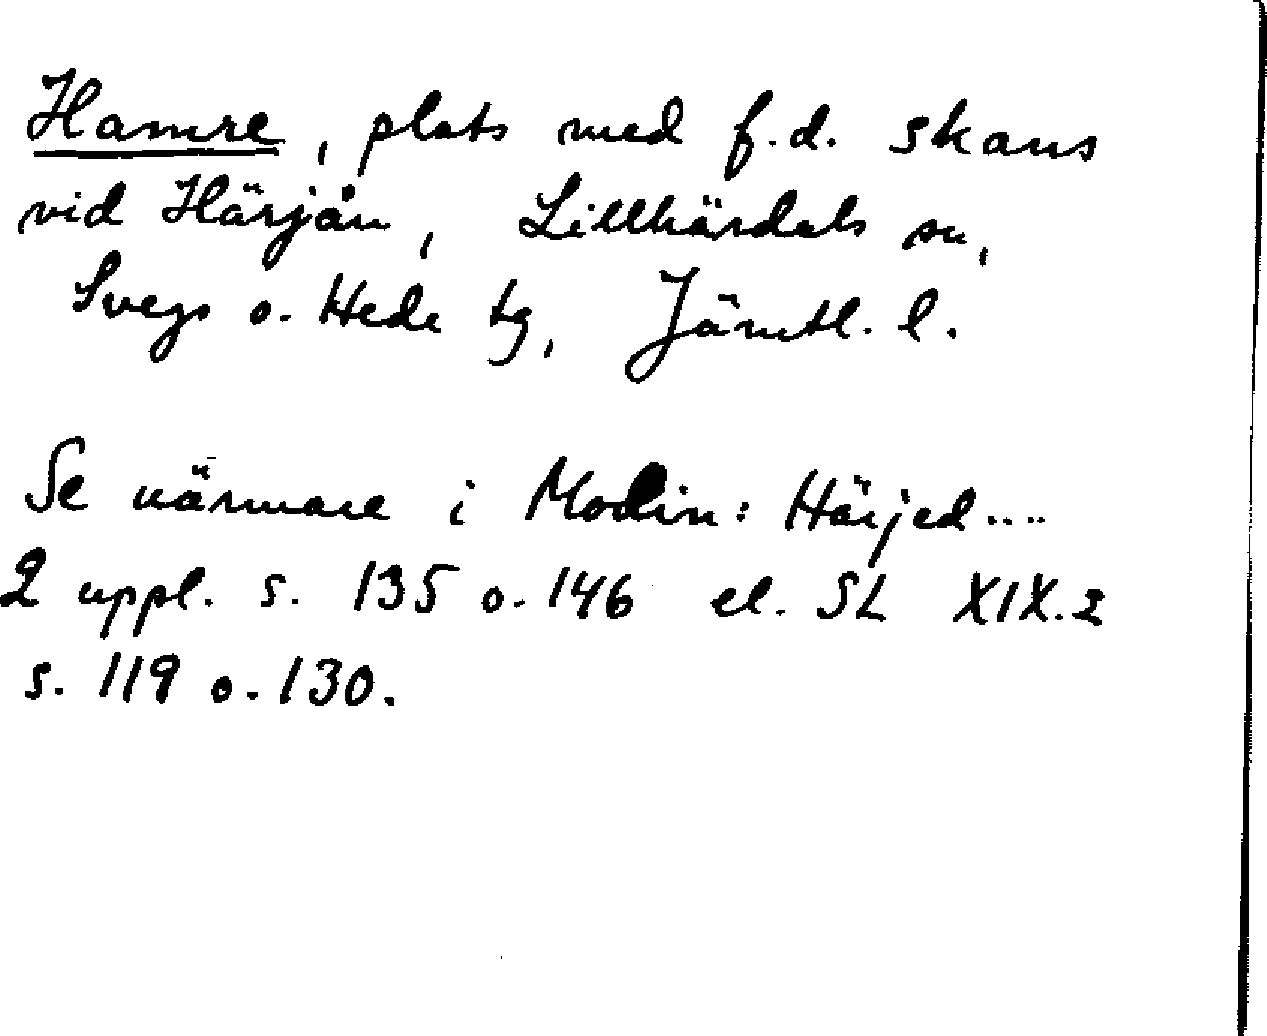 Hamre, plats med f.d. skans
vid Härjån, Lillhärdals sn,
Svegs o. Hede tg, Jämtl. l.
Se närmare i Modin: Härjed....
2 uppl. s. 135 o. 146 el. SL XIX.2
s. 119 o. 130.